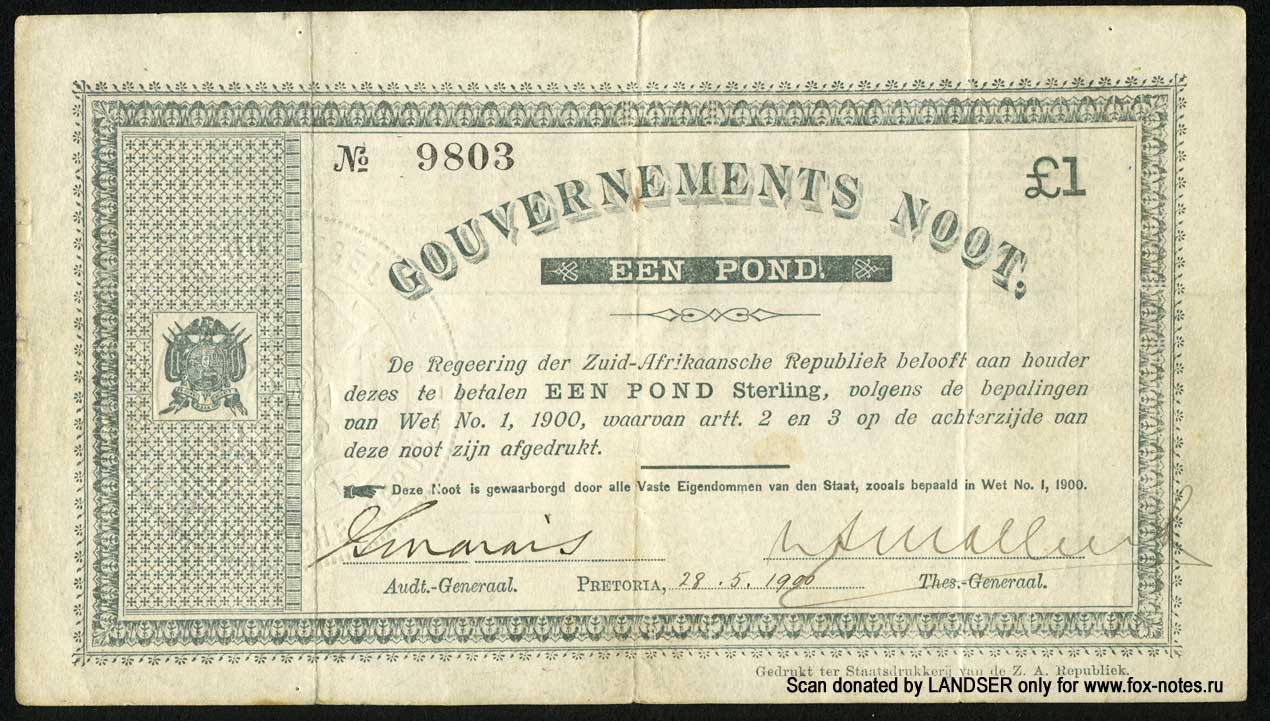 № 9803
£1
GOUVERNEMENTS NOOT,
EEN POND.
De Regeering der Zuid-Afrikaansche Republiek belooft aan houder
dezes te betalen EEN POND Sterling, volgens de bepalingen
van Wet No. 1, 1900, waarvan artt. 2 en 3 op de achterzijde van
deze noot zijn afgedrukt.
Deze Noot is gewaarborgd door alle Vaste Eigendommen van den Staat, zooals bepaald in Wet No. 1, 1900.
Audt.-Generaal. PRETORIA, 28.5.1900 Thes.-Generaal.
Gedrukt ter Staatsdrukkerij van de Z. A. Republiek.
Scan donated by LANDSER only for www.fox-notes.ru